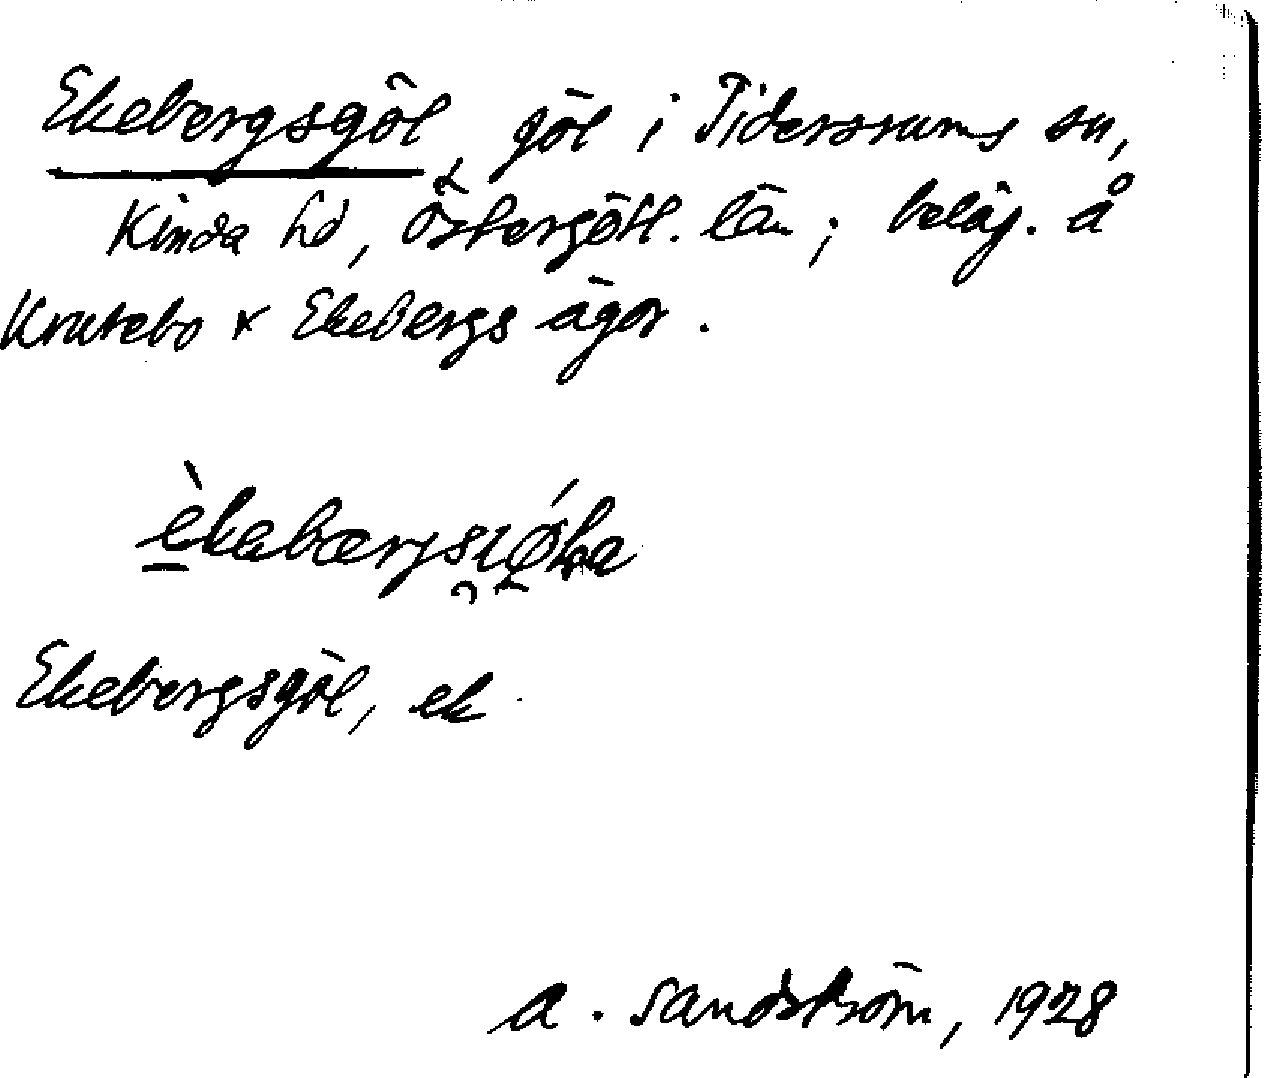 Ekebergsgöl, göl i Tidersrums sn,
Kinda hd, Östergötl. län; beläg. å
Krutebo & Ekebergs ägor.
Ekebergsgöl, ek
A. Sandström, 1928